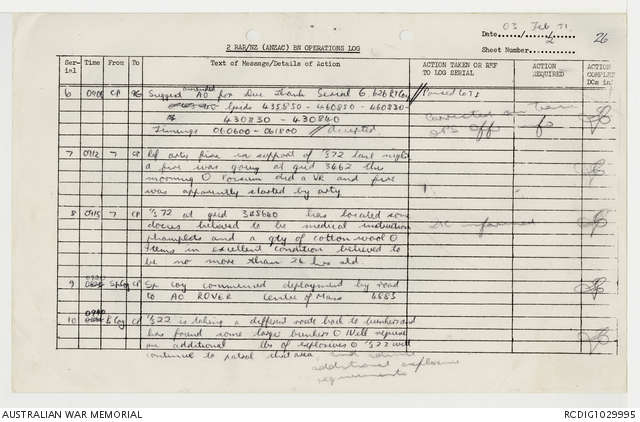 03 Feb 71
Date
2 RAR/NZ (ANZAC) BN OPERATIONS LOG
Sheet Number 2
26
Ser-ial Time From To Text of Message/Details of Action ACTION TAKEN OR REF TO LOG SERIAL ACTION REQUIRED ACTION COMPLET
6 CP Suggest amended AO for Due Thank Serial 6 Passed to Ts
Grids 435850 - 460850 - 460830 -
430830 - 430840
Timings 060600 - 061800 // Accepted
7 0912 7 CP Ref arty fire in support of 1/72 last night
a fire was going at grid 3662 this
morning O Possum did a VR and fire
was apparently started by arty
8 0915 7 CP 1/72 at grid 385640 has located some
docus believed to be medical instruction
phamplets and a qty of cotton wool O
Items in excellent condition believed to
be no more than 24 hrs old
9 0920 Sp Coy CP Sp Coy commenced deployment by road
to AO ROVER Centre of Mass 4683
10 0940 Coy CP 1/22 is taking a different route back to bunkers and
has found some large bunkers O Will require
an additional lbs of explosives O 1/22 will
continue to patrol that area and
additional explosive
requirements
AUSTRALIAN WAR MEMORIAL
RCDIG1029995